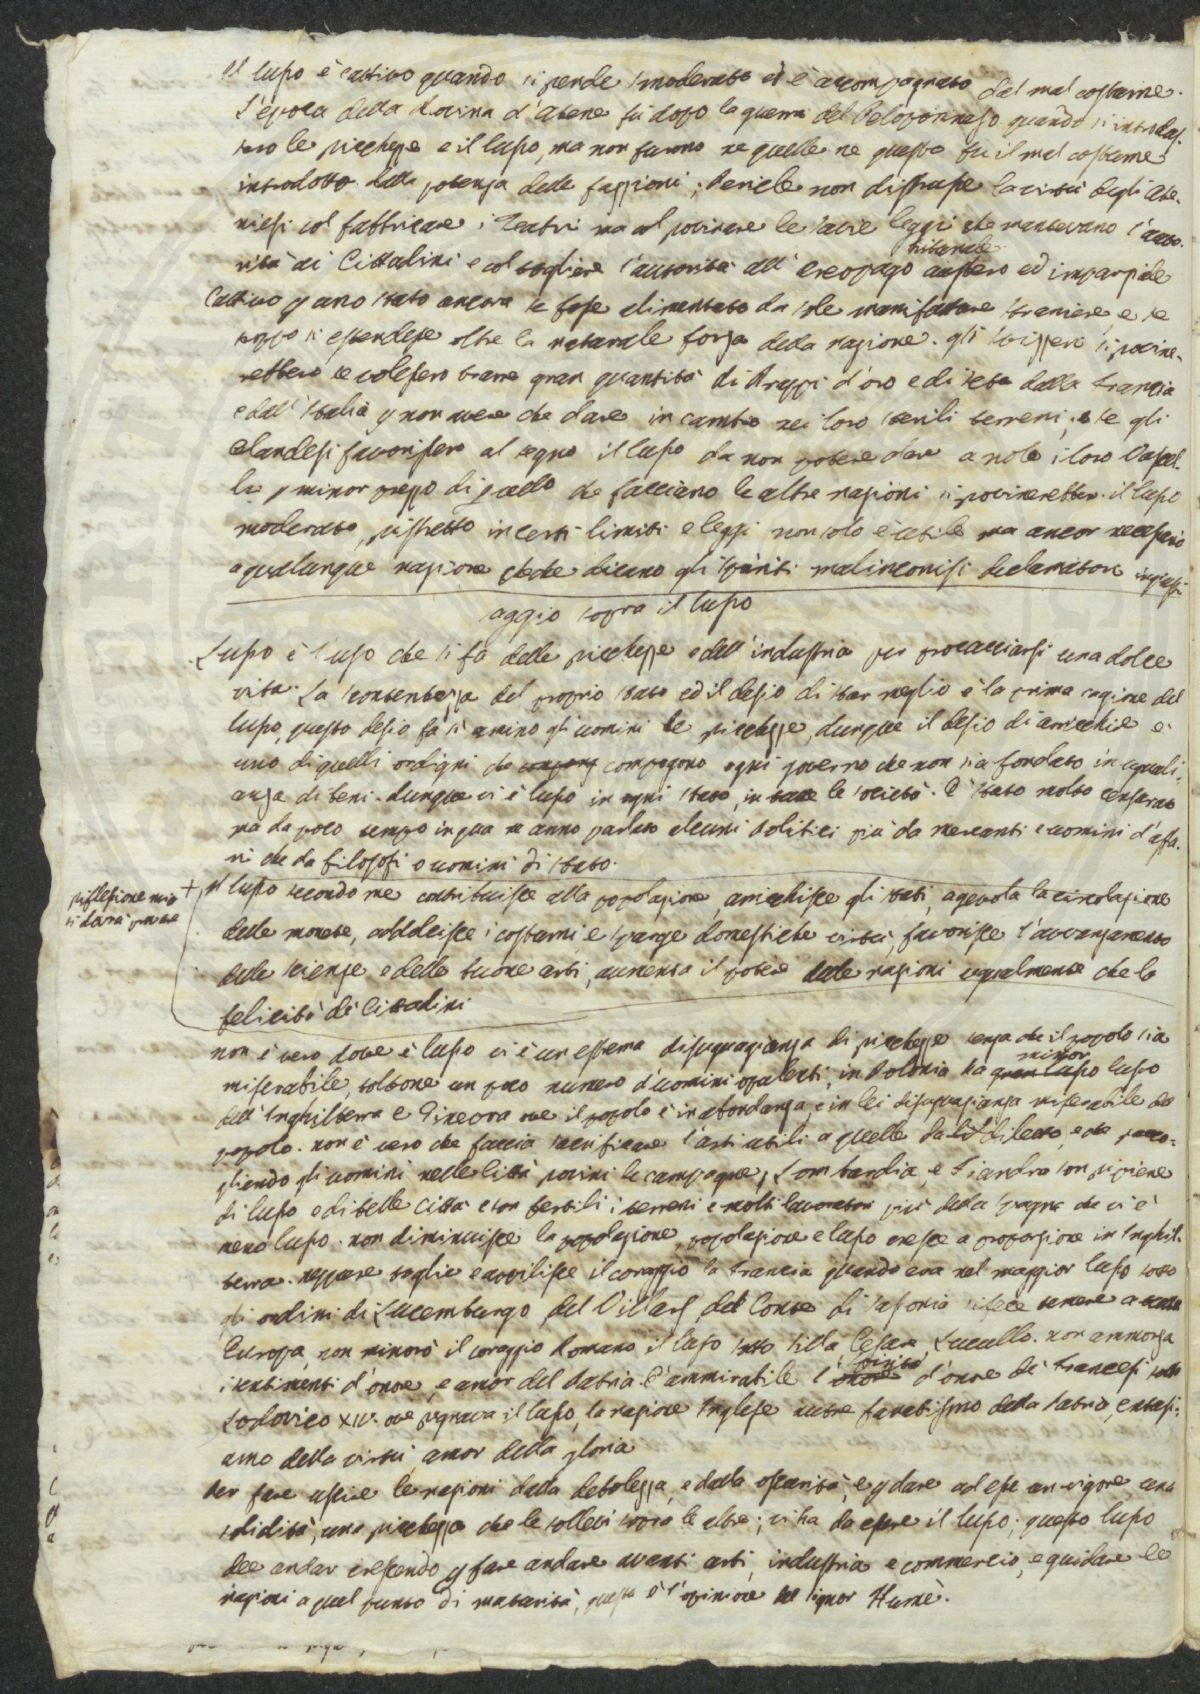 il lusso è cattivo quando si rende smoderato ed è accompagnato dal mal costume.
L'epoca della rovina d'Atene fu dopo la guerra del Peloponneso quando si introdus-
sero le ricchezze e il lusso, ma non furono ne quelle ne questo fu il mal costume
introdotto dalla potenza delle fazzioni; Pericle non distrusse la virtù degli Ate-
niesi col fabbricare i Teatri ma col rovinare le savie leggi che mantevano l'auto-
rità ai Cittadini e col togliere l'autorità all' Areopago tribunale austero ed imparziale
Cattivo p uno stato ancora se fosse alimentato da sole manifatture straniere, e se
troppo si estendesse oltre la naturale forza della nazione. gli Svizzeri si rovine-
rebbero se volessero trarre gran quantità di drappi d'oro e di seta dalla Francia
e dall' Italia p non avere che dare in cambio nei loro sterili terreni; e se gli
Olandesi favorissero al segno il lusso da non potere dare a nolo i loro Vascel-
li p minor prezzo di quello che facciano le altre nazioni si rovinerebber. il lusso
moderato, ristretto in certi limiti e leggi non solo è utile ma ancor necessario
a qualunque nazione checche dicano gli spiriti malinconisi declamatori ingiusti
aggio sopra il lusso
Lusso è l'uso che si fa delle ricchezze e dell' industria per procacciarsi una dolce
vita. La scontentezza del proprio stato ed il desio di star meglio è la prima cagione del
lusso, questo desio fa sì amino gli uomini le ricchezze, dunque il desio di arricchire è
uno di quelli ordigni che compongono ogni governo che non sia fondato in uguali-
anza di beni. dunque vi è lusso in ogni stato, in tutte le società. È stato molto censurato
ma da poco tempo in qua ne anno parlato alcuni Politici più da mercanti e uomini d'affa-
ri che da filosofi o uomini di stato.
riflessione mia
si dovrà provare
+ il lusso secondo me contribuisce alla popolazione, arrichisce gli stati, agevola la circolazione
delle monete, addolcisce i costumi e sparge domestiche virtù, favorisce l'avvanzamento
delle scienze e delle buone arti, aumenta il potere delle nazioni ugualmente che la
felicità de' Cittadini
non è vero dove è lusso vi è un estrema disuguaglianza di ricchezze senza che il popolo sia
miserabile, toltone un poco numero d'uomini opulenti, in Polonia ha minor lusso
dell' Inghilterra e Ginevra ove il popolo è in abondanza, e in lei disuguaglianza miserabile del
popolo. non è vero che faccia sacrificare l'arti utili a quelle di diletto, e che racco-
gliendo gli uomini nelle Città rovini le campagne; Lombardia, e Fiandra son ripiene
di lusso e di belle Città e son fertili i terreni e molti lavoratori più della Spagna che vi è
meno lusso. non diminuisce la popolazione, popolazione e lusso cresce a proporzione in Inghil-
terra. neppure toglie e avvilisce il coraggio la Francia quando era nel maggior lusso sotto
gli ordini di Lucemburgo del Villars del Conte di Sassonia si fece temere a tutta
Europa, non minorò il coraggio Romano il lusso sotto Silla Cesare Lucullo. non ammorza
i sentimenti d'onore, e amor del Patria. È ammirabile lo spirito d'onore de' Francesi sotto
Lodovico XIV. ove regnava il lusso, la nazione Inglese nutre fanatismo della Patria, entusi-
asmo della virtù, amor della gloria
Per fare uscire le nazioni dalla debolezza, e dalla oscurità, e p dare ad esse un vigore, una
solidità, una ricchezza che le sollevi sopra le altre; vi ha da essere il lusso; questo lusso
dee andar crescendo p fare andare avanti arti, industria e commercio, e guidare le
nazioni a quel punto di maturità, questa è l'opinione del signor Hume.